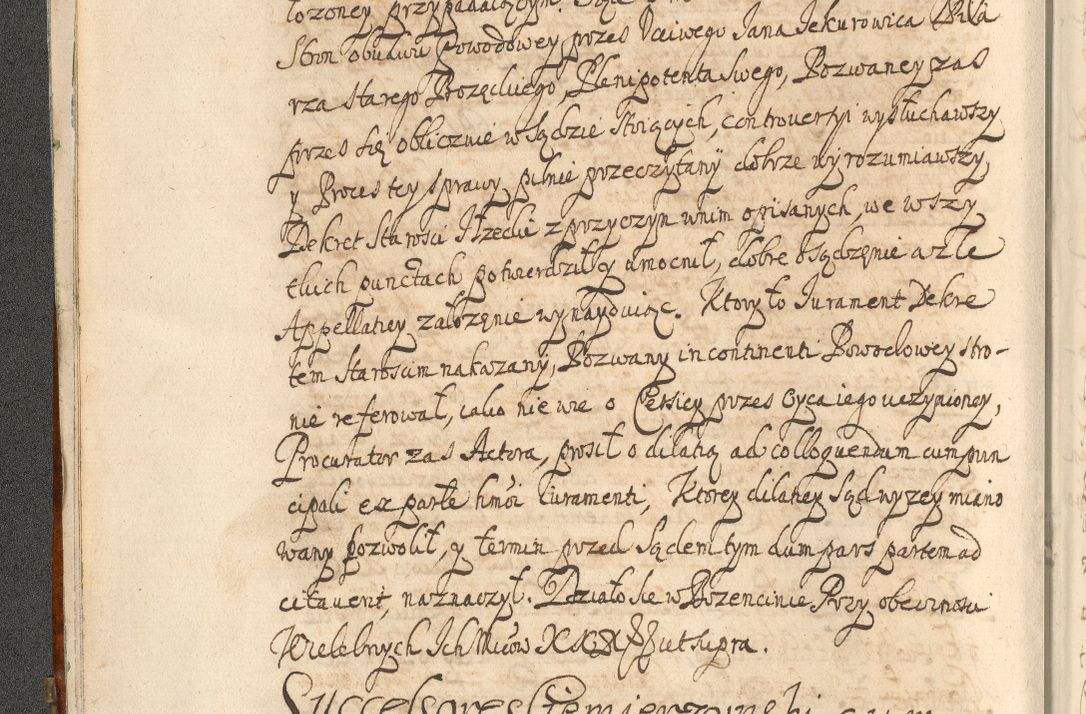 łozoney przypadaiącym.
Stron obudwu Powodowey przez Uciwego Jana Jekurowica Pisa
rza starego Brozęckiego, Plenipotenta swego, Pozwaney zas
przez się oblicznie w Sądzie stoiących, controuersyi wysłuchawszy
y Proces tey sprawy pilnie przeczytany dobrze wyrozumiawszy,
Dekret Starosci Ilzeckie z przyczyn wnim opisanych, we wszy
tkich punctach potwierdził y umocnił, dobre osądzęnie a złe
Appellatiey założęnie wynayduiąc. Ktory to Jurament Dekre
tem Staroscim nakazany, Pozwany in continenti Powodowey stro-
nie referował, iako nie wie o Cessiey przez Oyca iego uczynioney,
Procurator zas Actora, prosił o dilatią ad colloquendum cum prin
cipali ex parte hmōi Iuramenti, Ktorey dilatiey Sąd wyzey miano
wany pozwolił, y termin przed Sądem tym dum pars partem ad
citauerit, naznaczył. Działo się w Bozencinie Przy obecnosci
Wielebnych Ich Mciów XX ut supra.
Successores